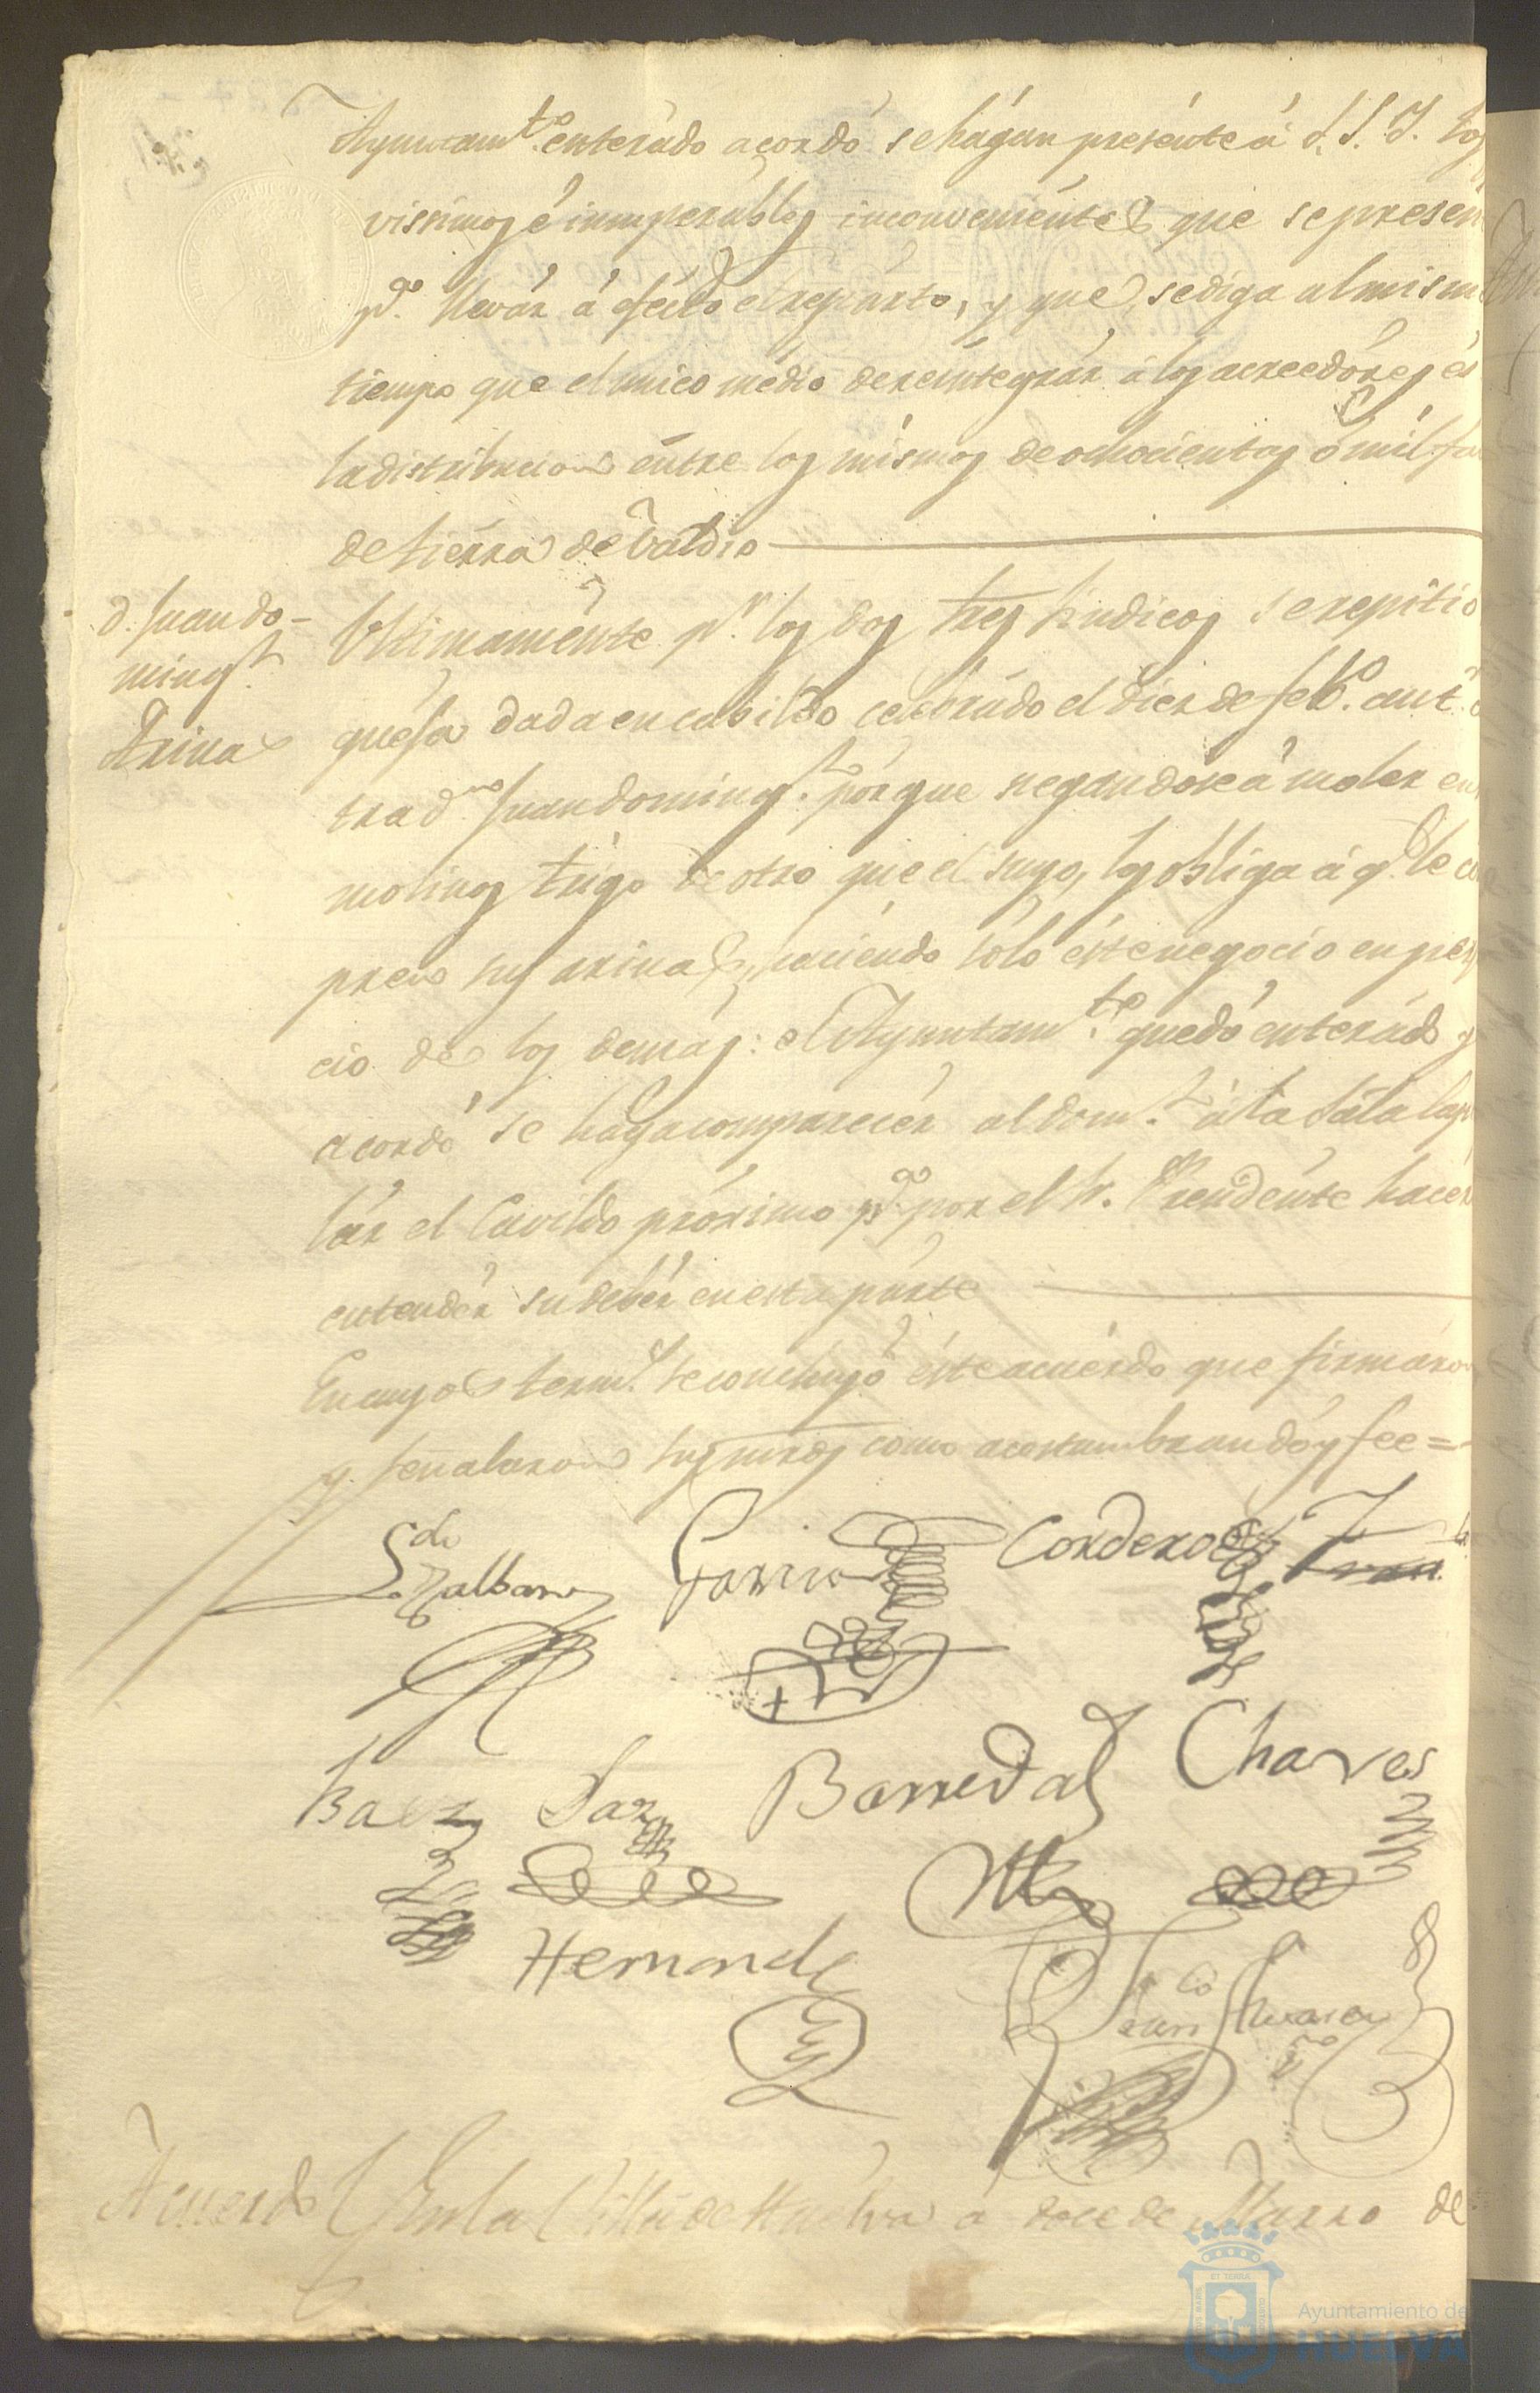 Ayuntam.to enterado acordó se hágan presénte á S. S. Y. los
vissimos é insuperábles inconveniéntes que se presen
p.a llevár á efécto el repárto, y que se diga al mism
tiempo que el unico médio de reintegrár á los acreedóres és
la distribucion éntre los mismos de ochocientas ó mil fan
de tierra de valdio
D. Juan do-
ming.z
Arina
Ultimamente p.r los dos Sres Sindicos se repitió
quéja dada en cabildo celebrádo el diez de feb.o ant.
tra d.n Juan doming.z porque negandose á moler en
molinos trigo de otro que el suyo, los obliga á q.e le co
pren sus arinas, haciéndo sólo éste negocio en perj
cio de los demás: el Ayuntam.to quedó enterádo y
acordó se haga comparecér al dom.z á la Sala cap
lár el Cavildo próximo p.a por el Sr. Presidénte hacér
entendér su debér en esta párte
En cuyos term.s se concluyó éste acuérdo que firmáron
y señalaron sus mrds como acostumbran dóy fee=
L.do
Zalbaro
Garrido
Cordero
Baez
Saz
Barreda
Chaves
Hernand.z
Fran.co
Alvarez
Acuerdo
En la Villa de Huelva á doce de Marzo de
Ayuntamiento de
HUELVA